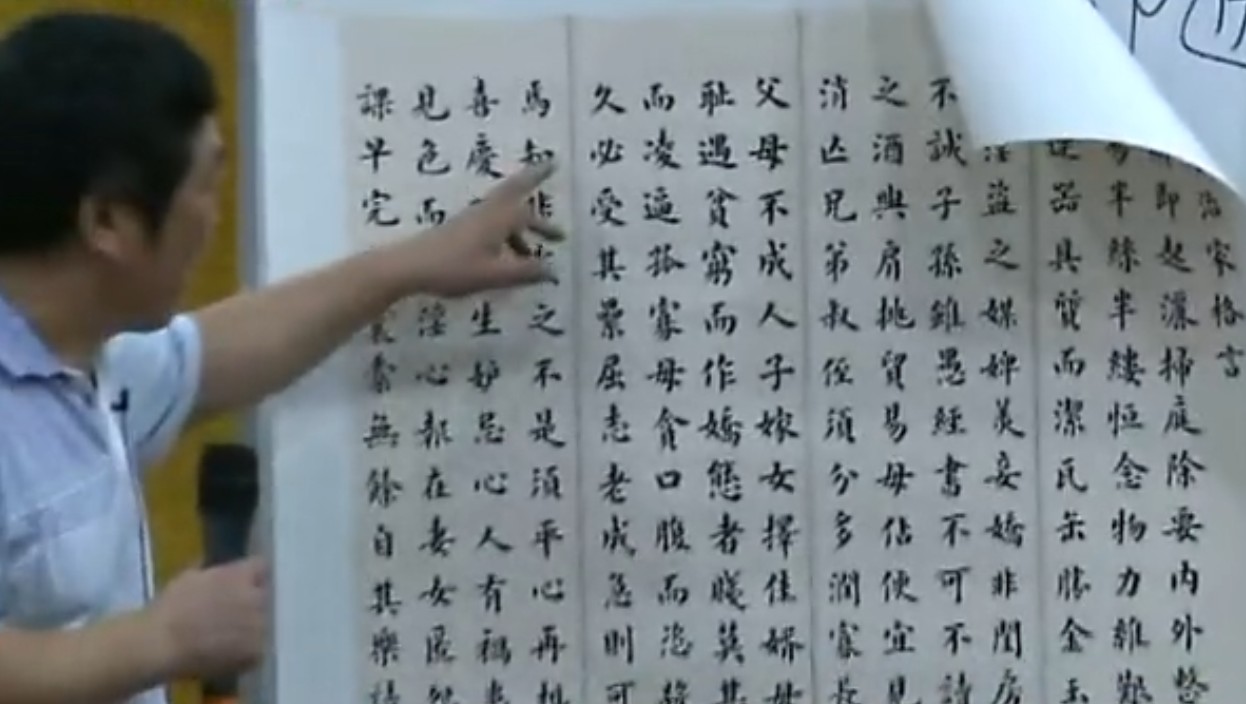 治家格言
即起灑掃庭除要內外整
易半絲半縷恒念物力維艱
器具質而潔瓦缶勝金玉
淫盜之媒婢美妾嬌非閨房
不誠子孫雖愚經書不可不讀
之酒與肩挑貿易毋佔便宜見
消亡兄弟叔侄須分多潤寡長
父母不成人子嫁女擇佳婿毋
恥遇貧窮而作嬌態者賤莫甚
而凌逼孤寡毋貪口腹而恣殺
久必受其累屈志老成急則可
焉知非之不是須平心再想
喜慶生妒忌心人有禍患
見色而淫心報在妻女匿怨
課早完囊橐無餘自其樂讀